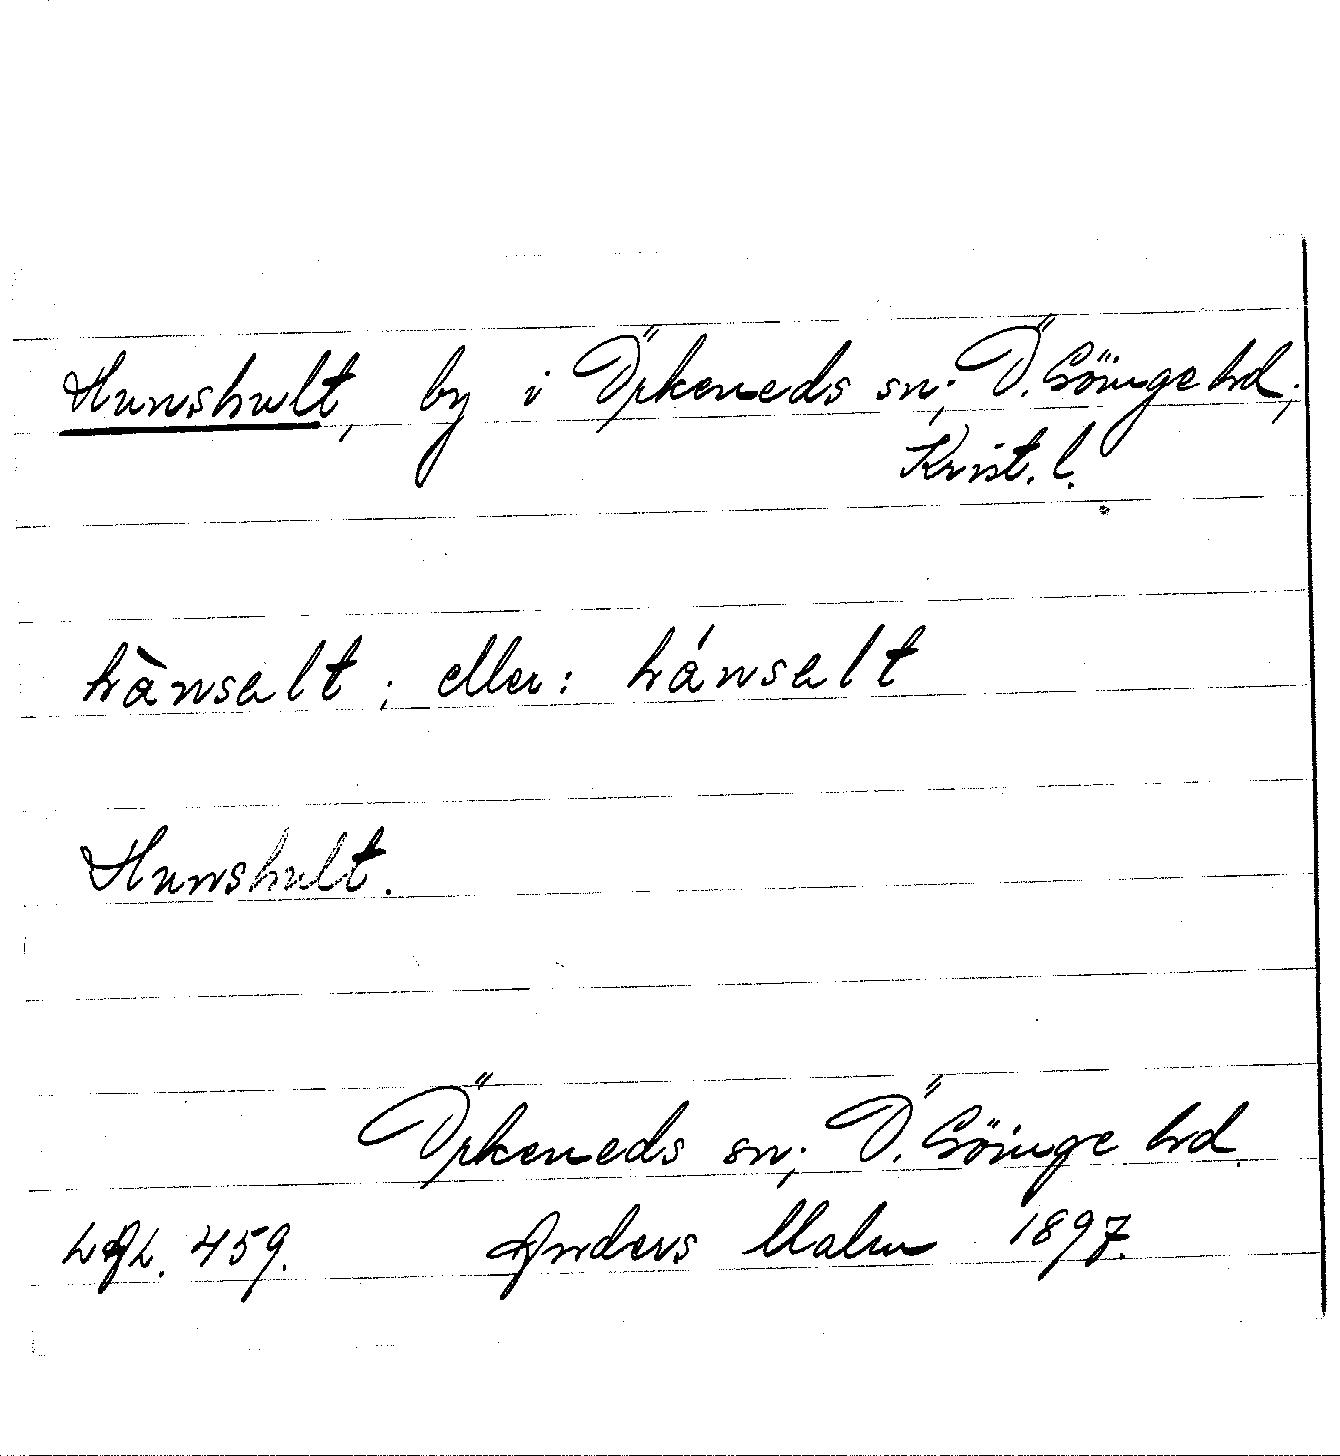 Hunshult, by i Örkeneds sn; Ö. Göinge hd;
Krist. l.
hànsalt; eller: hánsalt
Hunshult.
Örkeneds sn; Ö. Göinge hd.
459. Anders Malm 1897.